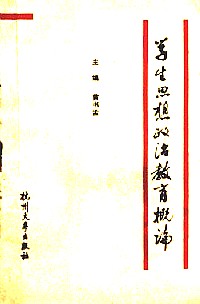 学生思想政治教育概论
主编 黄书孟
杭州大学出版社